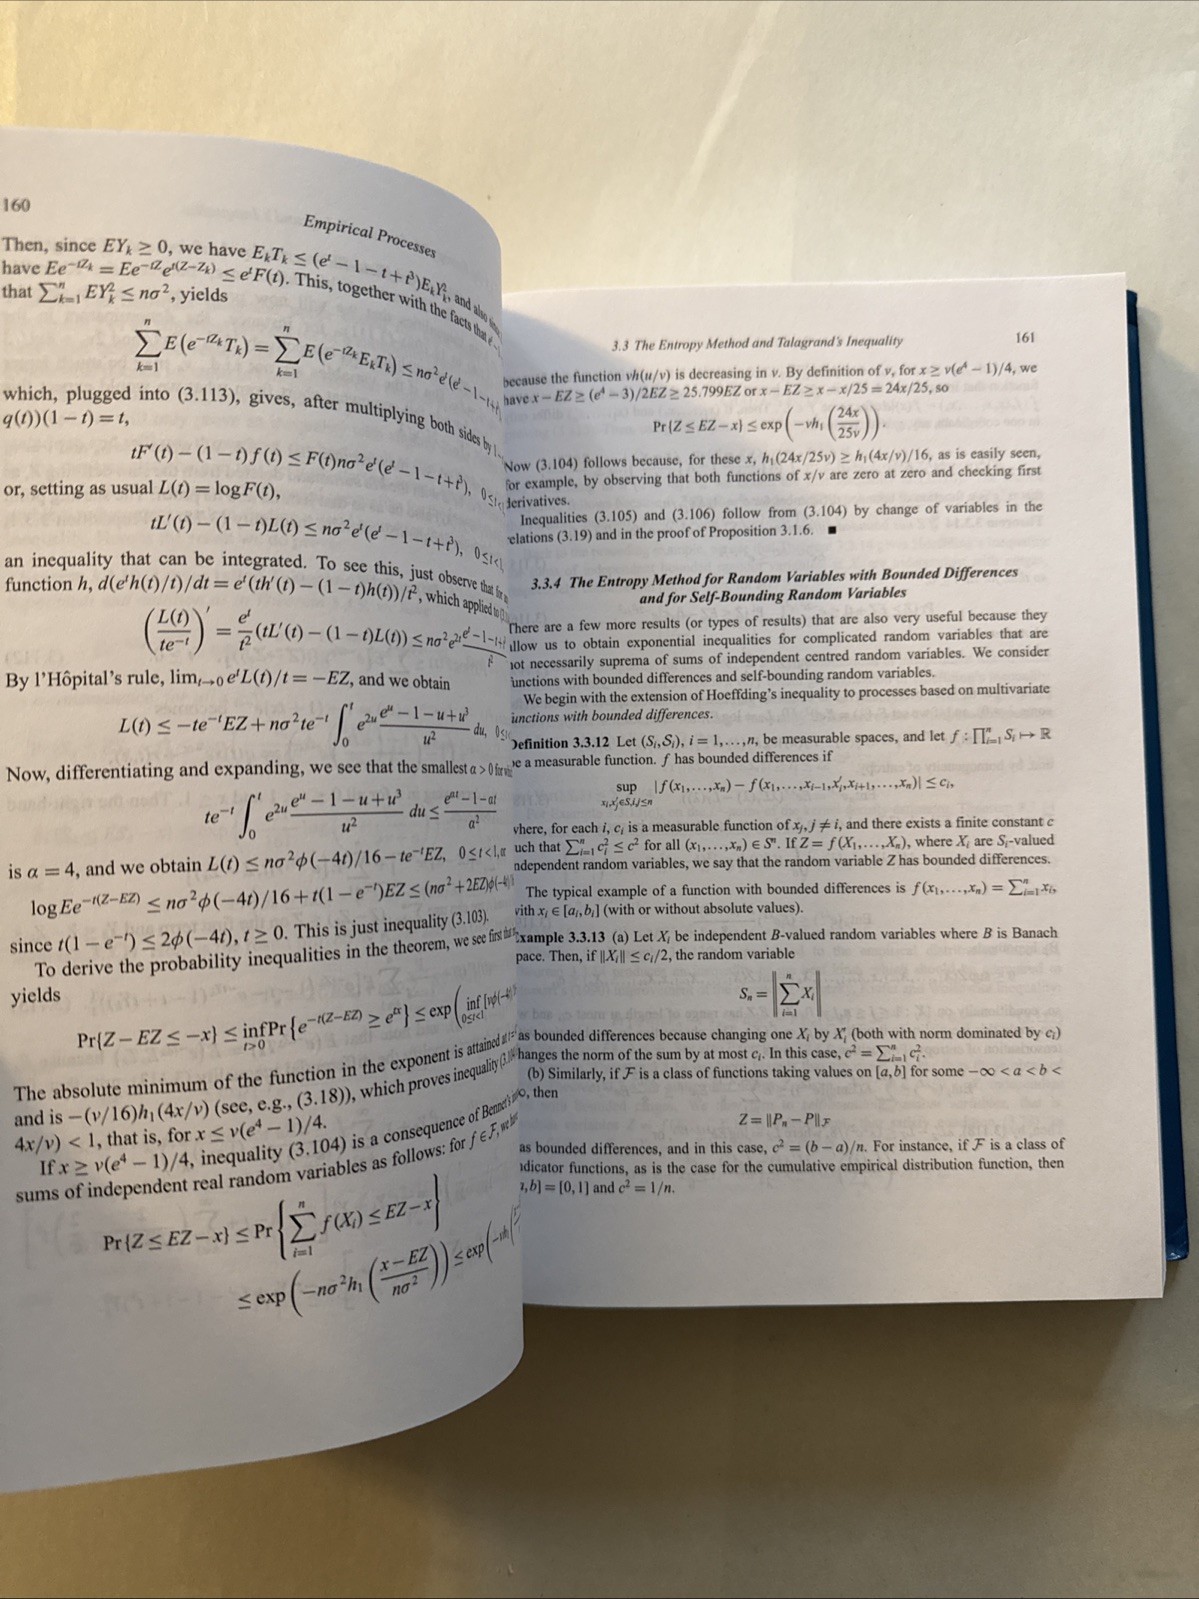 160
Empirical Processes
Then, since EYₖ ≥ 0, we have EₖTₖ ≤ (eᵗ − 1 − t + t³)EₖYₖ², and also since
have Ee^{−tZₖ} = Ee^{−tZ}e^{t(Z−Zₖ)} ≤ eᵗF(t). This, together with the facts that
that ∑ₖ₌₁ⁿ EYₖ² ≤ nσ², yields
∑ₖ₌₁ⁿ E(e^{−tZₖ}Tₖ) = ∑ₖ₌₁ⁿ E(e^{−tZₖ}EₖTₖ) ≤ nσ²eᵗ(eᵗ − 1 − t +
which, plugged into (3.113), gives, after multiplying both sides by
q(t))(1 − t) = t,
tF′(t) − (1 − t)f(t) ≤ F(t)nσ²eᵗ(eᵗ − 1 − t + t³), 0 ≤ t
or, setting as usual L(t) = log F(t),
tL′(t) − (1 − t)L(t) ≤ nσ²eᵗ(eᵗ − 1 − t + t³), 0 ≤ t <
an inequality that can be integrated. To see this, just observe that for
function h, d(eᵗh(t)/t)/dt = eᵗ(th′(t) − (1 − t)h(t))/t², which applied to
(L(t)/te^{−t})′ = eᵗ/t² (tL′(t) − (1 − t)L(t)) ≤ nσ²e^{2t} eᵗ − 1 − t + / t²
By l'Hôpital's rule, lim_{t→0} eᵗL(t)/t = −EZ, and we obtain
L(t) ≤ −te^{−t}EZ + nσ²te^{−t} ∫₀ᵗ e^{2u} (eᵘ − 1 − u + u³)/u² du, 0 ≤
Now, differentiating and expanding, we see that the smallest α > 0 for
te^{−t} ∫₀ᵗ e^{2u} (eᵘ − 1 − u + u³)/u² du ≤ (e^{αt} − 1 − αt)/α²
is α = 4, and we obtain L(t) ≤ nσ²ϕ(−4t)/16 − te^{−t}EZ, 0 ≤ t < 1,
log Ee^{−t(Z−EZ)} ≤ nσ²ϕ(−4t)/16 + t(1 − e^{−t})EZ ≤ (nσ² + 2EZ)ϕ(−4
since t(1 − e^{−t}) ≤ 2ϕ(−4t), t ≥ 0. This is just inequality (3.103).
To derive the probability inequalities in the theorem, we see first
yields
Pr{Z − EZ ≤ −x} ≤ inf_{t>0} Pr{e^{−t(Z−EZ)} ≥ e^{tx}} ≤ exp(inf_{0≤t<1}[vϕ(−4
The absolute minimum of the function in the exponent is attained
and is −(v/16)h₁(4x/v) (see, e.g., (3.18)), which proves inequality
4x/v) < 1, that is, for x ≤ v(e⁴ − 1)/4.
If x ≥ v(e⁴ − 1)/4, inequality (3.104) is a consequence of Bennet's
sums of independent real random variables as follows: for f ∈ F, we
Pr{Z ≤ EZ − x} ≤ Pr{∑ᵢ₌₁ⁿ f(Xᵢ) ≤ EZ − x}
≤ exp(−nσ²h₁((x − EZ)/nσ²)) ≤ exp(
3.3 The Entropy Method and Talagrand's Inequality
161
because the function vh(u/v) is decreasing in v. By definition of v, for x ≥ v(e⁴ − 1)/4, we
have x − EZ ≥ (e⁴ − 3)/2EZ ≥ 25.799EZ or x − EZ ≥ x − x/25 = 24x/25, so
Pr{Z ≤ EZ − x} ≤ exp(−vh₁(24x/25v)).
Now (3.104) follows because, for these x, h₁(24x/25v) ≥ h₁(4x/v)/16, as is easily seen,
for example, by observing that both functions of x/v are zero at zero and checking first
derivatives.
Inequalities (3.105) and (3.106) follow from (3.104) by change of variables in the
relations (3.19) and in the proof of Proposition 3.1.6. ■
3.3.4 The Entropy Method for Random Variables with Bounded Differences
and for Self-Bounding Random Variables
There are a few more results (or types of results) that are also very useful because they
allow us to obtain exponential inequalities for complicated random variables that are
not necessarily suprema of sums of independent centred random variables. We consider
functions with bounded differences and self-bounding random variables.
We begin with the extension of Hoeffding's inequality to processes based on multivariate
functions with bounded differences.
Definition 3.3.12 Let (Sᵢ, 𝒮ᵢ), i = 1,…,n, be measurable spaces, and let f : ∏ᵢ₌₁ⁿ Sᵢ ↦ ℝ
be a measurable function. f has bounded differences if
sup_{xᵢ,x′ᵢ∈S,i,j≤n} |f(x₁,…,xₙ) − f(x₁,…,xᵢ₋₁,x′ᵢ,xᵢ₊₁,…,xₙ)| ≤ cᵢ,
where, for each i, cᵢ is a measurable function of xⱼ, j ≠ i, and there exists a finite constant c
such that ∑ᵢ₌₁ⁿ cᵢ² ≤ c² for all (x₁,…,xₙ) ∈ Sⁿ. If Z = f(X₁,…,Xₙ), where Xᵢ are Sᵢ-valued
independent random variables, we say that the random variable Z has bounded differences.
The typical example of a function with bounded differences is f(x₁,…,xₙ) = ∑ᵢ₌₁ⁿ xᵢ,
with xᵢ ∈ [aᵢ,bᵢ] (with or without absolute values).
Example 3.3.13 (a) Let Xᵢ be independent B-valued random variables where B is Banach
space. Then, if ‖Xᵢ‖ ≤ cᵢ/2, the random variable
Sₙ = ‖∑ᵢ₌₁ⁿ Xᵢ‖
has bounded differences because changing one Xᵢ by X′ᵢ (both with norm dominated by cᵢ)
changes the norm of the sum by at most cᵢ. In this case, c² = ∑ᵢ₌₁ⁿ cᵢ².
(b) Similarly, if F is a class of functions taking values on [a,b] for some −∞ < a < b <
∞, then
Z = ‖Pₙ − P‖_F
has bounded differences, and in this case, c² = (b − a)/n. For instance, if F is a class of
indicator functions, as is the case for the cumulative empirical distribution function, then
[a,b] = [0,1] and c² = 1/n.